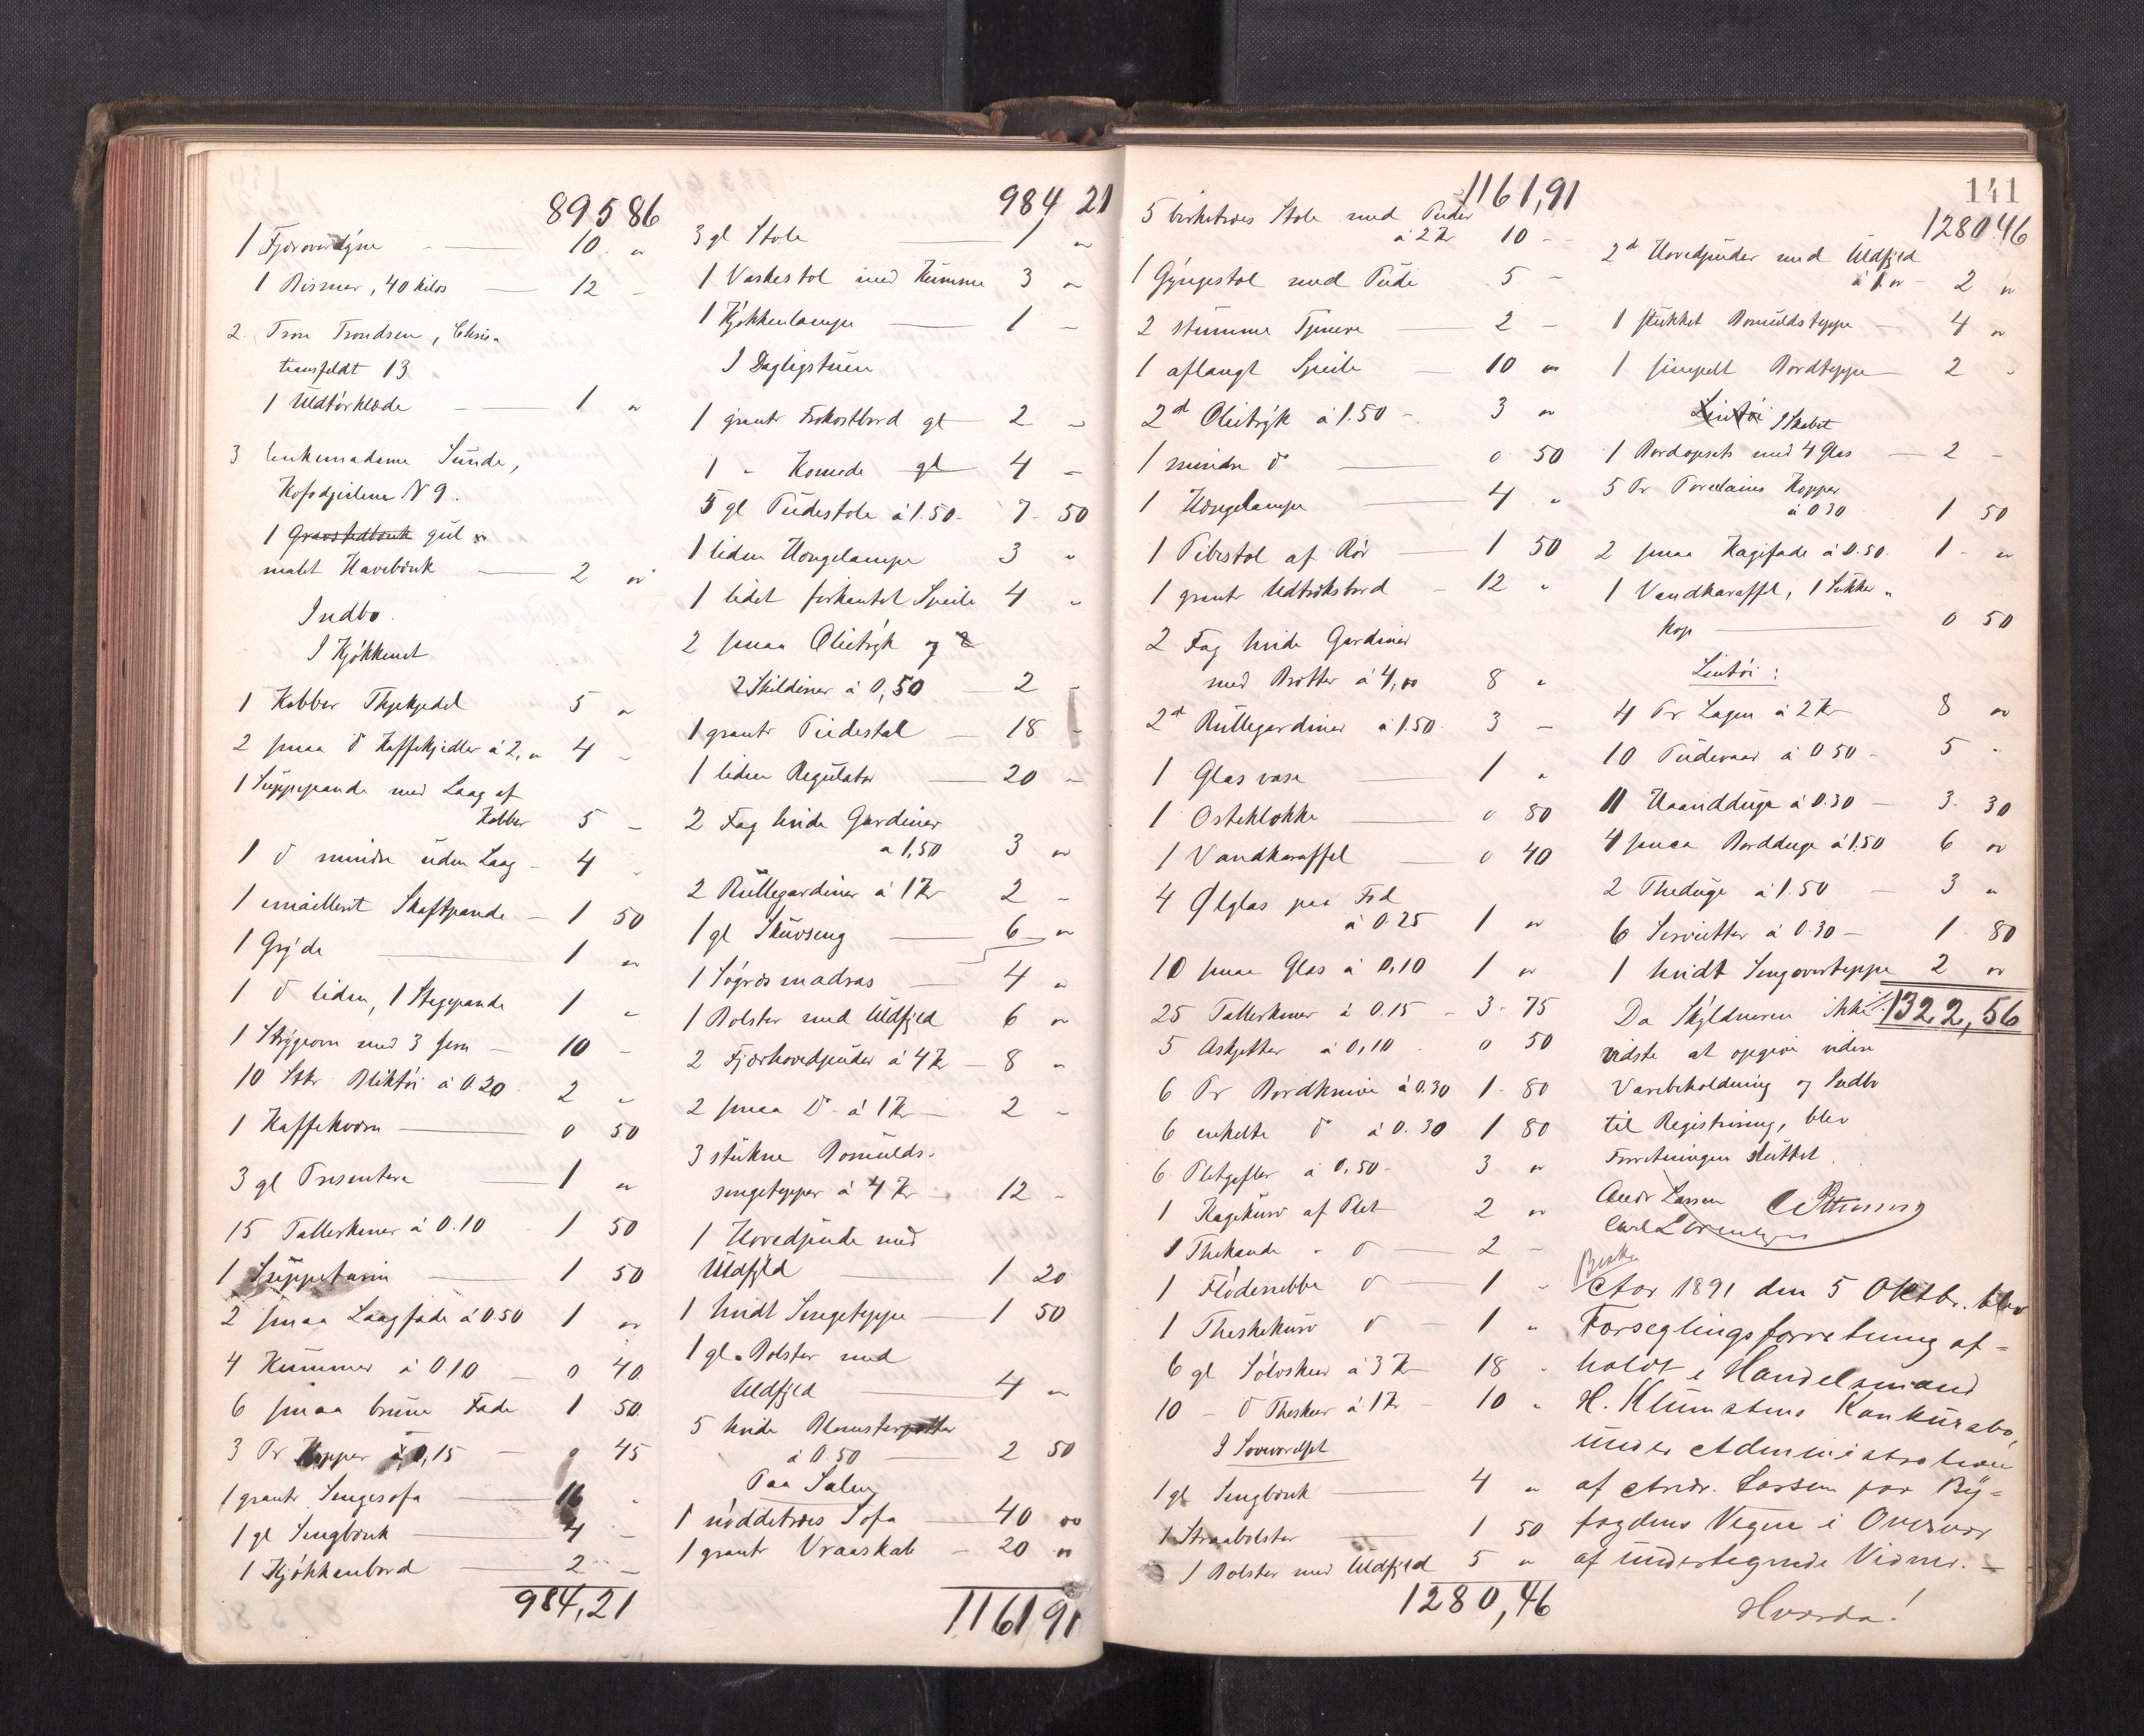 895 86
1 Fjæroverdyne - — 10. "
1 Bismer, 40 kilos — 12 -
2. Tron Trondsen, Chris-
tiansfeldt 13
1 Uldtørklæde - — 1 "
3 Enkemadame Sunde,
N 9.
1 gul
malet Havebænk — 2 "
Indbo.
I Kjøkkenet
1 Kobber Thekjedel 5 "
2 smaa d° Kaffekjedler à 2, " 4 -
1 Suppepande med Laag af
Kobber 5 -
1 d° mindre uden Laag - 4 -
1 emailleret Skaftpande - 1 50
1 Gryde — 1 "
1 d° liden, 1 Stegepande 1 "
1 Strygeovn med 3 Jern - 10 -
10 Stkr Bliktøi à 0.20. 2 "
1 Kaffekværn — 0 50
3 gl Presentere — 1 "
15 Tallerkener à 0.10 1 50
1 Suppeterin — 1 50
2 smaa Laagfade à 0.50 1 "
4 Kummer à 0.10 - 0 40
6 smaa brune Fade 1 50.
3 Pr Kopper à 0,15 - 0 45
1 grantr. Sengesofa — 16 "
1 gl Sengbænk — 4 -
1 Kjøkkenbord — 2 -
984,21
984, 21
3 gl Stole 1 "
1 Vaskestol med Kumme 3 "
1 Kjøkkenlampe — 1 -
I Dagligstuen
1 grantr Frokostbord gl - 2 -
1 " Komode gl 4 -
5 gl Pudestole à 1.50. 7. 50
1 liden Hængelampe 3 "
1 lidet firkantet Speile 4 "
2 smaa Olietryk og
2 Skilderier à 0,50 - 2 -
1 grantr Piedestal - 18 -
1 liden Regulator — 20 -
2 Fag hvide Gardiner
a 1,50 3 "
2 Rullegardiner à 1 Kr 2 -
1 gl Skuvseng — 6 "
1 Søgræsmadras - 4 "
1 Bolster med Uldfyld 6 "
2 Fjærhovedpuder à 4 Kr - 8 "
2 smaa D° à 1 Kr — 2 -
3 stukne Bomulds-
sengetepper à 4 Kr - 12 -
1 Hovedpude med
Uldfyld — 1 20
1 hvidt Sengeteppe — 1 50
1 gl. Bolster med
Uldfyld — 4 "
5 hvide Blomsterpotter
à 0.50 — 2 50
Paa Salen
1 nøddetræes Sofa — 40 00
1 grantr Vraaskab - 20 "
1161 91
1161,91
5 birketræes Stole med Puder
à 2 Kr 10 -
1 Gyngestol med Pude 5 -
2 stumme Tjenere — 2 -
1 aflangt Speile - 10 "
2d Olietryk à 1.50 - 3 "
1 mindre d° — 0 50
1 Hængelampe — 4 "
1 Pibestol af Rør — 1 50
1 grantr Udtræksbord - 12 "
2 Fag hvide Gardiner
med Bretter à 4,00 8 "
2d Rullegardiner à 1.50. 3 -
1 Glas vase — 1 "
1 Osteklokke — 0 80
1 Vandkaraffel — 0 40
4 Ølglas paa Fod
à 0.25 1 "
10 smaa Glas à 0,10 1 "
25 Tallerkener à 0.15 - 3. 75
5 Asjetter à 0,10 . 0 50
6 Pr Bordknive à 0.30 1. 80
6 enkelte d° à 0.30 1 80
6 Pletgafler à 0,50- 3 "
1 Kagekurv af Plet 2 "
1 Thekande " d° — 2 -
1 Flødenebbe d° — 1 "
1 Theskekurv d° — 1 "
6 gl Sølvskeer à 3 Kr 18 "
10 - d° Theskeer à 1 Kr - 10 "
I Soveværelset
1 gl Sengbænk — 4 "
1 Straabolster — 1 50
1 Bolster med Uldfyld 5 "
1280,46
141
1280.46
2d Hovedpuder med Uldfyld
à 1 " - 2 "
1 stukket Bomuldsteppe - 4 "
1 simpelt Bordteppe - 2 -
Lintøi I Skabet
1 Bordopsats med 4 Glas - 2 -
5 Pr Porcelains Kopper
à 0 30 1 50
2 smaa Kagefade à 0.50. 1 - "
1 Vandkaraffl, 1 Sukker "
Kop — 0 50
Lintøi:
4 Pr Lagen à 2 Kr 8 "
10 Pudevaar à 0 50 - 5 -
11 Haandduge à 0.30 - 3. 30
4 smaa Bordduge à 1.50 6 "
2 Theduge à 1.50 - 3 "
6 Servietter à 0.30 - 1. 80
1 hvidt Sengeovertæppe 2 "
Da Skyldneren ikke 1322,56
vidste at opgive videre
Varebeholdning og Indbo
til Registrering, blev
Forretningen sluttet.
Andr Larsen
Carl Lorentzen
Aar 1891 den 5 Oktbr. blev
Forseglingsforretning af-
holdt i Handelsmand
H. Klumstens Konkursbo,
under Administration
af Andr. Larsen for By-
fogdens Vegne i Overvær
af undertegnede Vidner. -
Hvorda!